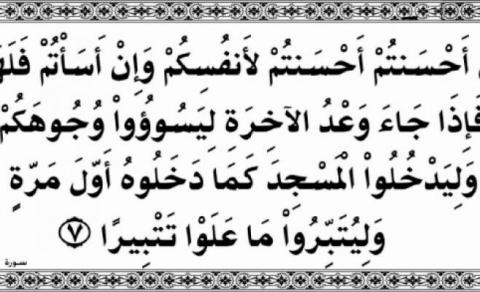 أَحْسَنتُمْ أَحْسَنتُمْ لأَنفُسِكُمْ وَإِنْ أَسَأْتُمْ فَلَهَا
فَإِذَا جَاءَ وَعْدُ الآخِرَةِ لِيَسُوؤُواْ وُجُوهَكُمْ
وَلِيَدْخُلُواْ الْمَسْجِدَ كَمَا دَخَلُوهُ أَوَّلَ مَرَّةٍ
وَلِيُتَبِّرُواْ مَا عَلَوْا تَتْبِيرًا ﴿٧﴾
سورة